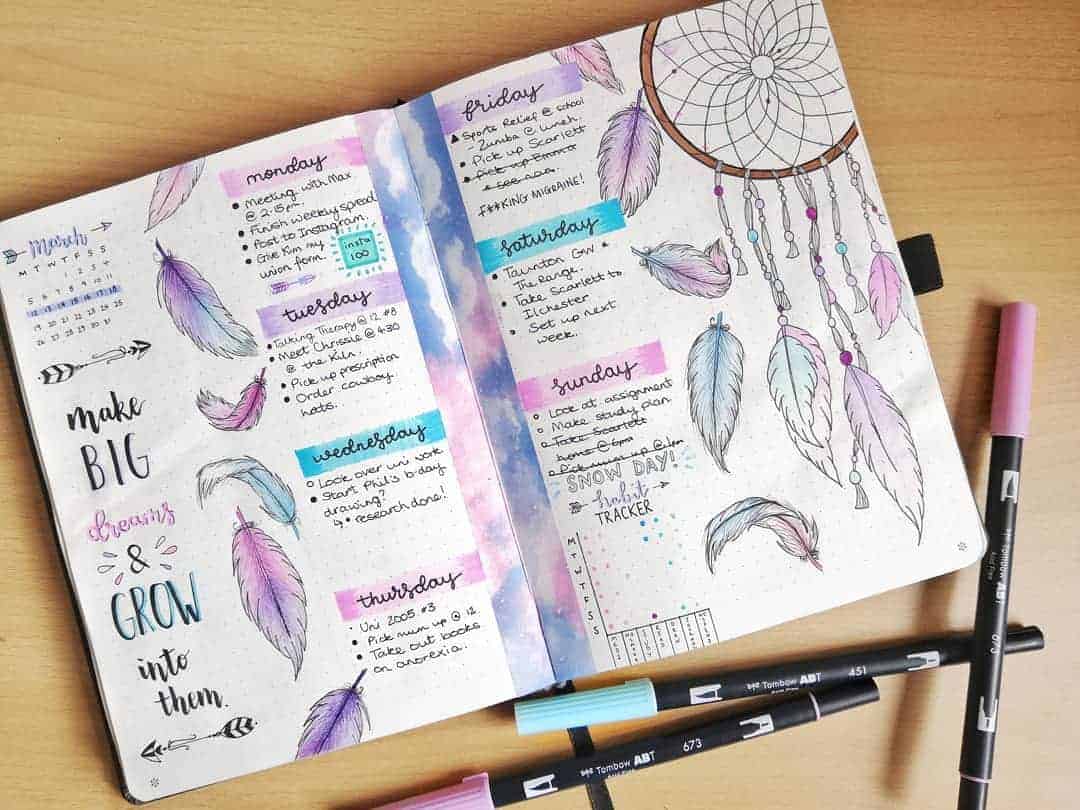 march
M T W T F S S
1 2 3 4
5 6 7 8 9 10 11
12 13 14 15 16 17 18
19 20 21 22 23 24 25
26 27 28 29 30 31
make
BIG
dreams
&
GROW
into
them.
monday
Meeting with Max
@ 2:15pm.
Finish weekly spread
Post to Instagram.
Give Kim my
union form.
insta
100
tuesday
Talking Therapy @ 12 #8
Meet Chrissie @ 4:30
@ the Kiln.
Pick up prescription
Order cowboy
hats.
wednesday
Look over uni work
Start Phil's b-day
drawing?
research done!
thursday
Uni 2005 #3
Pick mum up @ 12.
Take out books
on anorexia.
friday
Sports Relief @ school
- Zumba @ lunch.
Pick up Scarlett
Pick up Emma
F**KING MIGRAINE!
saturday
Taunton
The Range.
Take Scarlett to
Ilchester
Set up next
week.
sunday
Look at assignment
Make study plan.
Take Scarlett
home @ 6pm
Pick mum up @
SNOW DAY!
habit
TRACKER
M
T
W
T
F
S
S
Tombow ABT 451
673 Tombow ABT
Tombow ABT 673